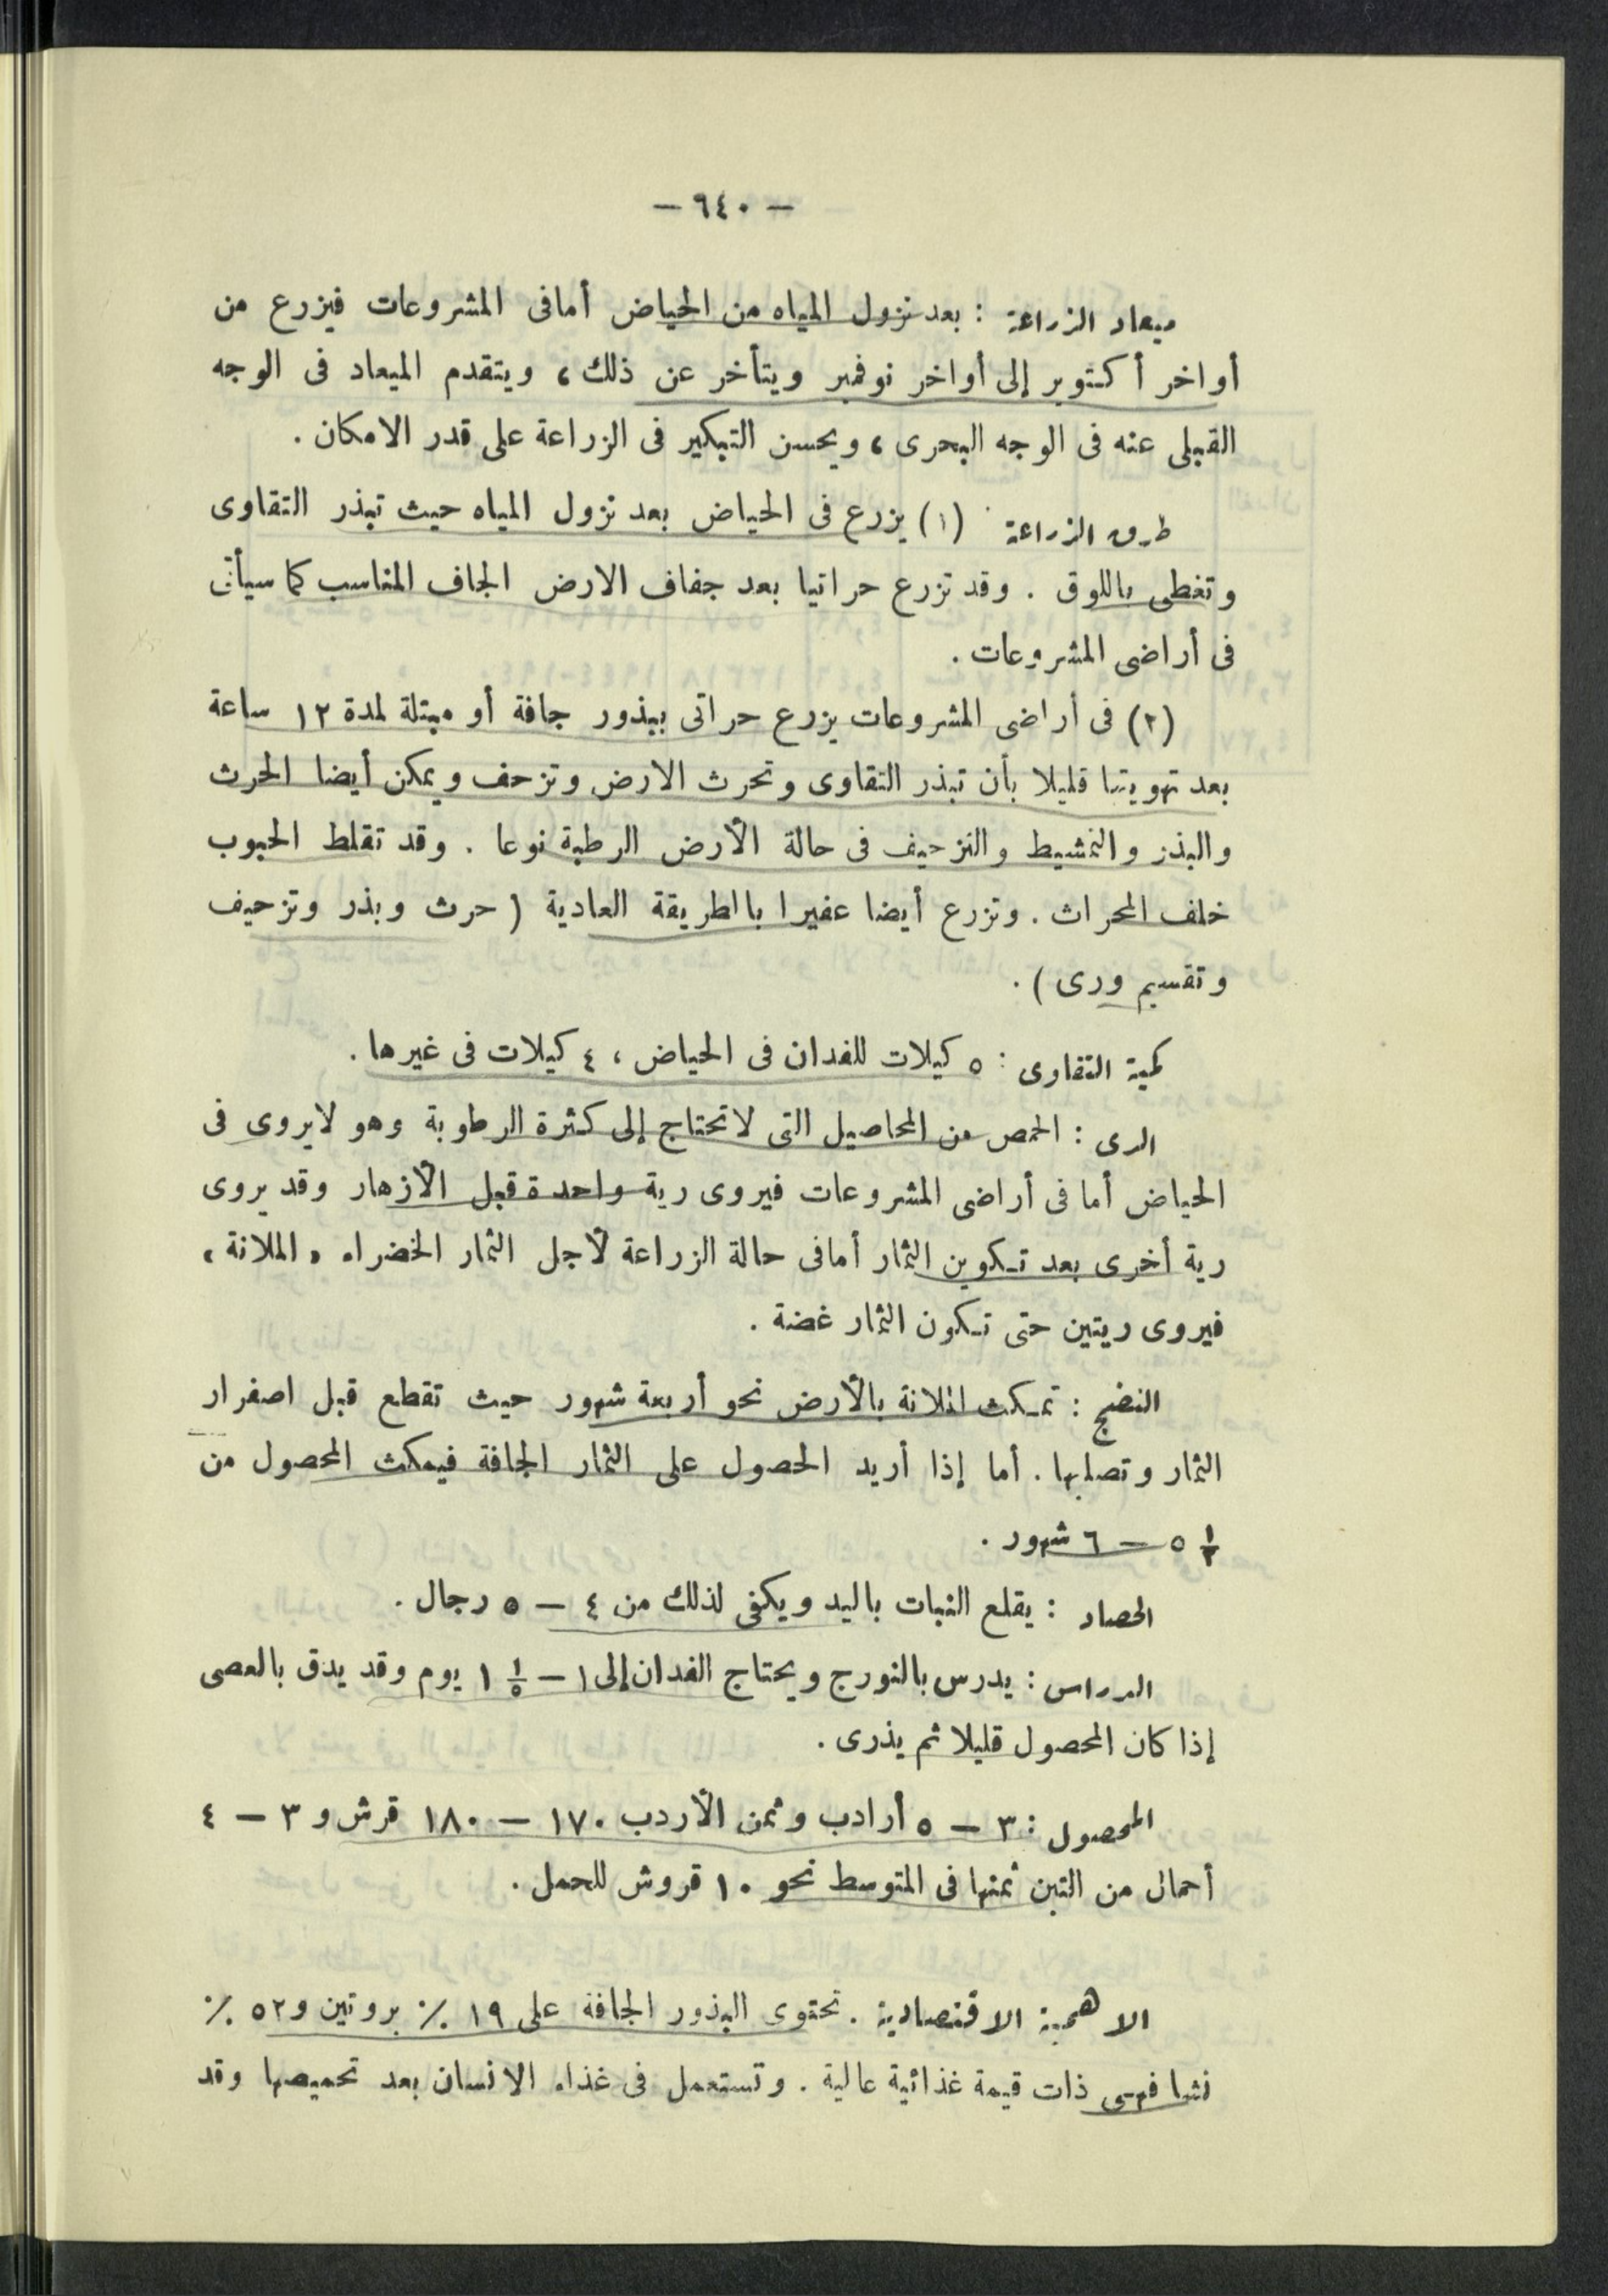 — ٦٤٠ —
ميعاد الزراعة : بعد نزول المياه من الحياض أما فى المشروعات فيزرع من
أواخر أكتوبر إلى أواخر نوفمبر ويتأخر عن ذلك ، ويتقدم الميعاد فى الوجه
القبلى عنه فى الوجه البحرى ، ويحسن التبكير فى الزراعة على قدر الامكان .
طرق الزراعة (١) يزرع فى الحياض بعد نزول المياه حيث تبذر التقاوى
وتغطى باللوق . وقد تزرع حراتيا بعد جفاف الارض الجاف المناسب كما سيأتى
فى أراضى المشروعات .
(٢) فى أراضى المشروعات يزرع حراتى ببذور جافة أو مبتلة لمدة ١٢ ساعة
بعد تهويتها قليلا بأن تبذر التقاوى وتحرث الارض وتزحف ويمكن أيضا الحرث
والبذر والتمشيط والتزحيف فى حالة الأرض الرطبة نوعا . وقد تقلط الحبوب
خلف المحراث . وتزرع أيضا عفيرا باالطريقة العادية ( حرث وبذر وتزحيف
وتقسيم ورى ) .
كمية التقاوى : ٥ كيلات للفدان فى الحياض ، ٤ كيلات فى غيرها .
الرى : الحمص من المحاصيل التى لا تحتاج إلى كثرة الرطوبة وهو لا يروى فى
الحياض أما فى أراضى المشروعات فيروى رية واحدة قبل الأزهار وقد يروى
رية أخرى بعد تكوين الثمار أما فى حالة الزراعة لأجل الثمار الخضراء « الملانة »
فيروى ريتين حتى تكون الثمار غضة .
النضج : تمكث الملانة بالأرض نحو أربعة شهور حيث تقطع قبل اصفرار
الثمار وتصلبها . أما إذا أريد الحصول على الثمار الجافة فيمكث المحصول من
٥ ½ — ٦ شهور .
الحصاد : يقلع النبات باليد ويكفى لذلك من ٤ — ٥ رجال .
الدراس : يدرس بالنورج ويحتاج الفدان إلى ١ — ١ ⅕ يوم وقد يدق بالعصى
إذا كان المحصول قليلا ثم يذرى .
المحصول : ٣ — ٥ أرادب وثمن الأردب ١٧٠ — ١٨٠ قرش و ٣ — ٤
أحمال من التبن ثمنها فى المتوسط نحو ١٠ قروش للحمل .
الاهمية الاقتصادية . تحتوى البذور الجافة على ١٩ ٪ بروتين و ٥٢ ٪
نشا فهى ذات قيمة غذائية عالية . وتستعمل فى غذاء الانسان بعد تحميصها وقد